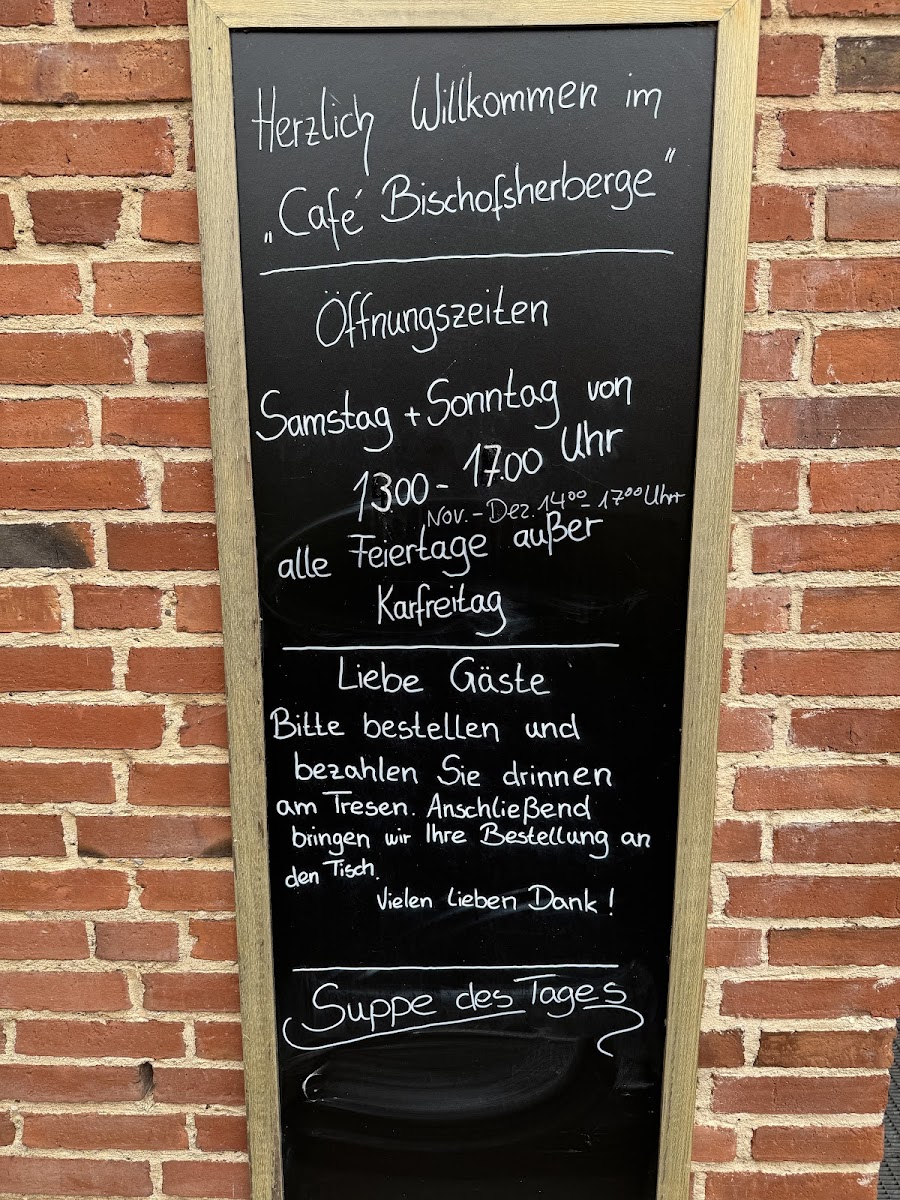 Herzlich Willkommen im
„Café Bischofsherberge"
Öffnungszeiten
Samstag + Sonntag von
1300 - 17.00 Uhr
Nov. - Dez. 14⁰⁰ - 17⁰⁰ Uhr
alle Feiertage außer
Karfreitag
Liebe Gäste
Bitte bestellen und
bezahlen Sie drinnen
am Tresen. Anschließend
bringen wir Ihre Bestellung an
den Tisch.
Vielen lieben Dank!
Suppe des Tages